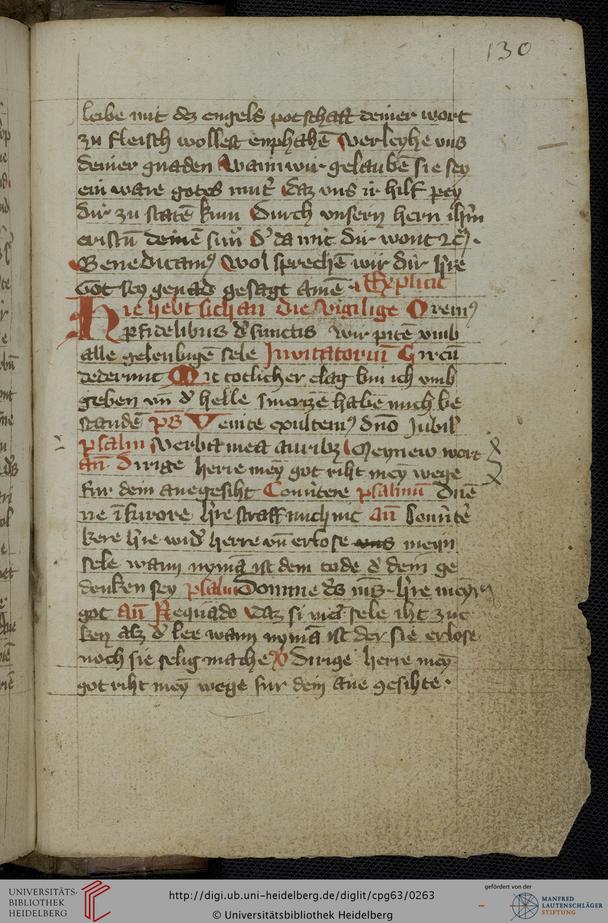 130
leibe mit dez engels potschaft deiner wort
zu fleisch wollest enphahē verleyhe vns
deiner gnaden Wann wir gelaubē sie sey
ein ware gotes mut' daz vns ir hilf pey
dir zu statē kum Durch vnsern hern ihm
cristū deinē sun d' da mit dir wont
Benedicam9 Wol sprechē wir dir h're
Got sey genad gesagt amē Explicit
Hie hebt sich an die vigilige Orem9
p fidelibus defunctis wir pitē vmb
alle geleubigē sele Inuitatoriū Circū
dederunt Mit totlicher clag bin ich vmb
geben vn̄ d' helle smerzē habē mich be
standē ps Venite exultem9 dn̄o Jubil'
psalm Verba mea aurib3 Meynew wort
an̄ Dirige herre mey got riht mey wege
fur dein anegesiht Conu'tere psalmū Dn̄e
ne ī furore h're straff mich nit an̄ Conu'te'
kere h're wid' herre vn̄ erlose meyn
sele wann nymā ist dem tode d' dein ge
denken sey psalm Domine d's m's h're meyn
got an̄ Nequādo Daz si mein sele iht zuc
ken alz d' lee wann nymā ist der sie erlose
noch sie selig mache V Dirige herre mey
got riht mey wege fur dein ane gesihte
UNIVERSITÄTS-
BIBLIOTHEK
HEIDELBERG
http://digi.ub.uni-heidelberg.de/diglit/cpg63/0263
© Universitätsbibliothek Heidelberg
gefördert von der
MANFRED
LAUTENSCHLÄGER
STIFTUNG